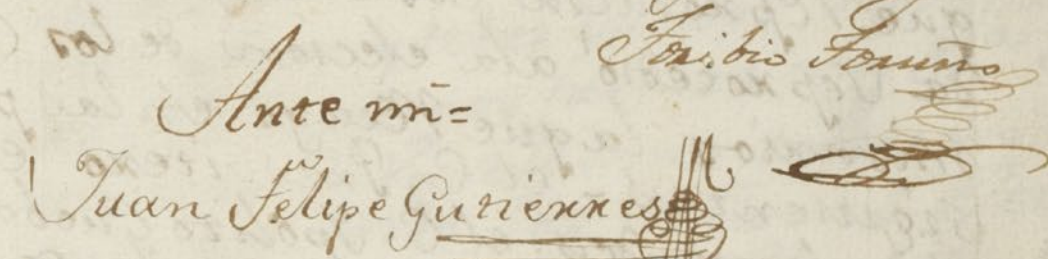 Toribio Toruño
Ante mi=
Juan Felipe Gutierres